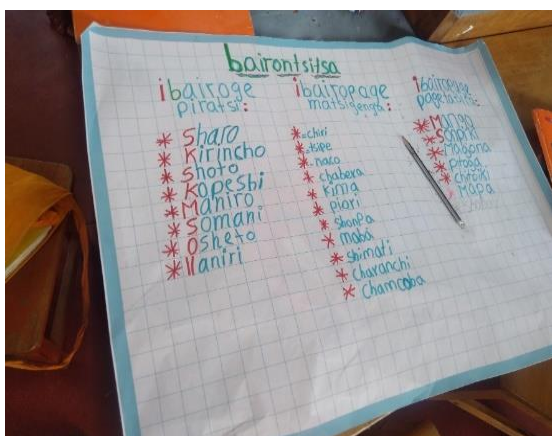 bairontsitsa
ibairoge
piratsi:
* Sharo
* Kirincho
* Shoto
* Kapeshi
* Maniro
* Somani
* Osheto
* Yaniri
ibairopage
matsigenga:
* chiri
* tsipe
* naco
* chabera
* Kima
* piari
* shonpa
* maba
* shimati
* charanchi
* chamcoba
ibairopage
* Manga
* Magona
* Ptoga
* chiroiki
* Mapa